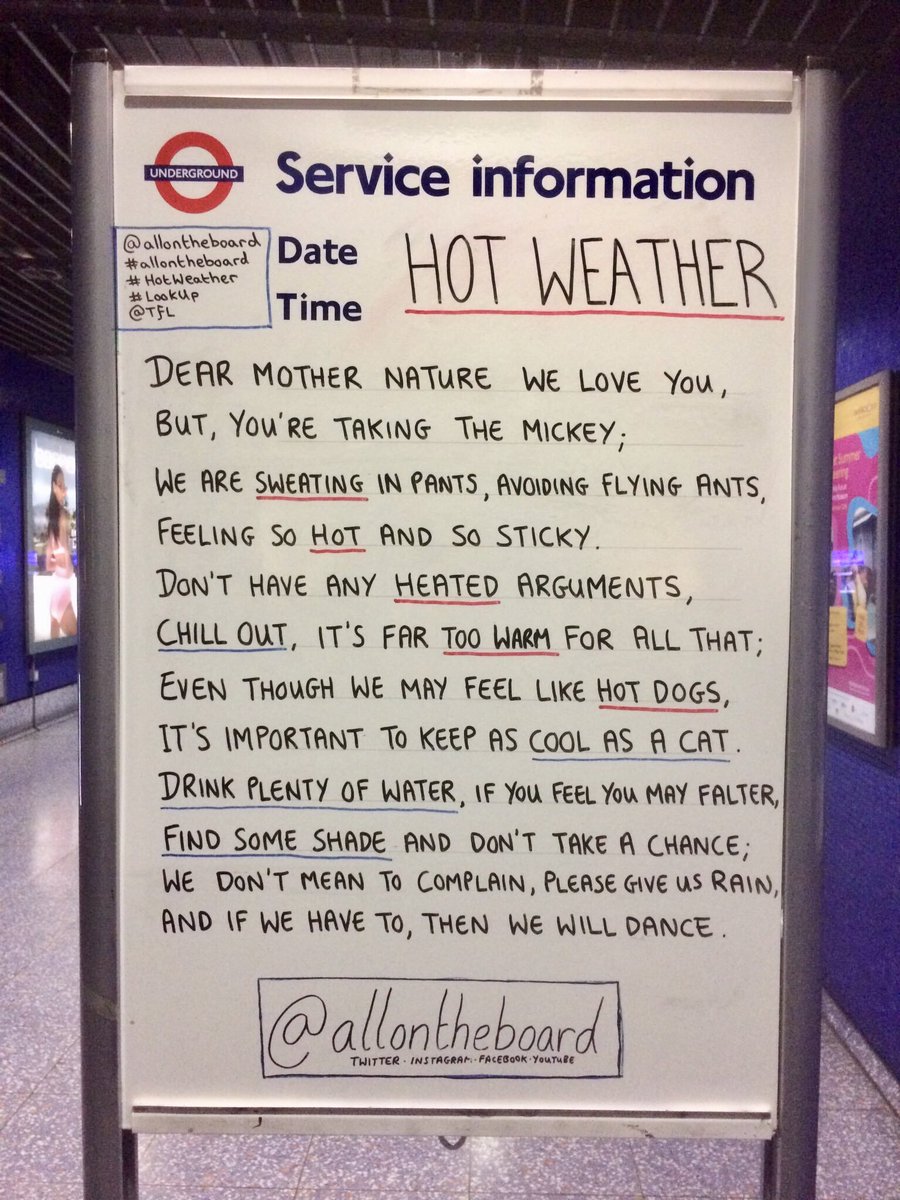 UNDERGROUND
Service information
@allontheboard
#allontheboard
#HotWeather
#LookUp
@TfL
Date
Time
HOT WEATHER
DEAR MOTHER NATURE WE LOVE YOU,
BUT, YOU'RE TAKING THE MICKEY;
WE ARE SWEATING IN PANTS, AVOIDING FLYING ANTS,
FEELING SO HOT AND SO STICKY.
DON'T HAVE ANY HEATED ARGUMENTS,
CHILL OUT, IT'S FAR TOO WARM FOR ALL THAT;
EVEN THOUGH WE MAY FEEL LIKE HOT DOGS,
IT'S IMPORTANT TO KEEP AS COOL AS A CAT.
DRINK PLENTY OF WATER, IF YOU FEEL YOU MAY FALTER,
FIND SOME SHADE AND DON'T TAKE A CHANCE;
WE DON'T MEAN TO COMPLAIN, PLEASE GIVE US RAIN,
AND IF WE HAVE TO, THEN WE WILL DANCE.
@allontheboard
TWITTER · INSTAGRAM · FACEBOOK · YOUTUBE